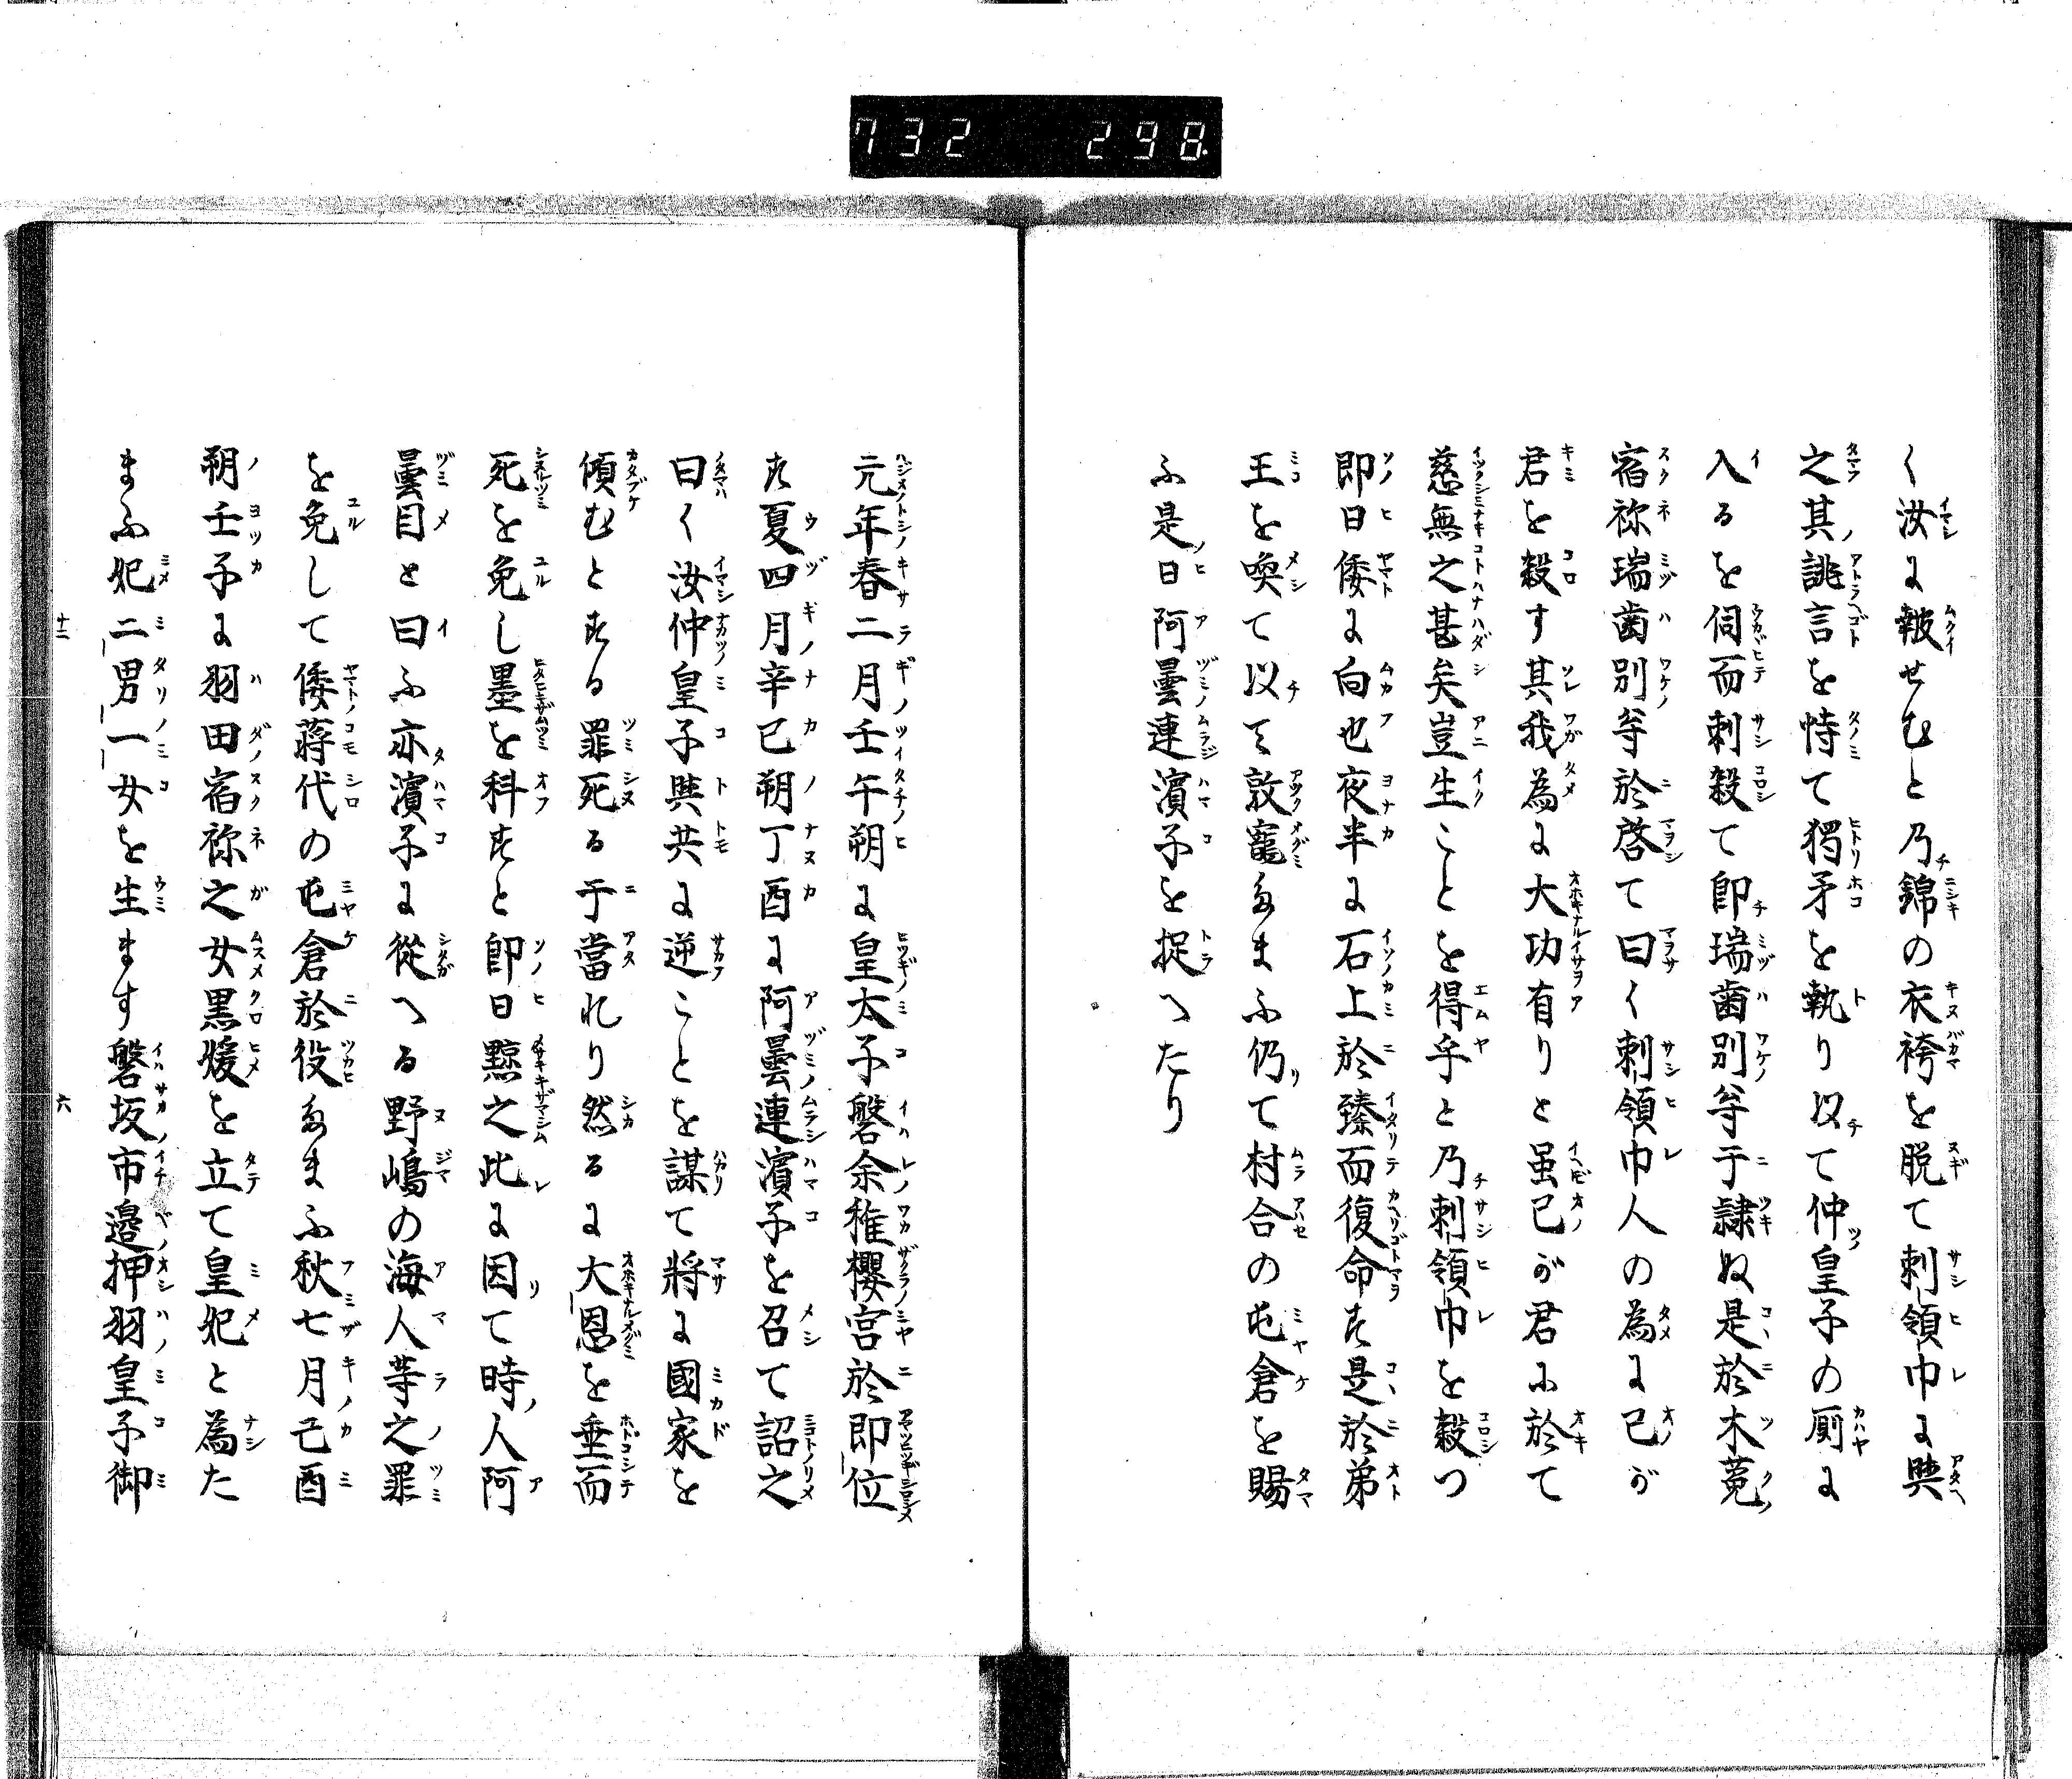 732 298
く汝に報せむと乃錦の衣袴を脱て刺領巾に與
之其誂言を恃て獨矛を執り以て仲皇子の厠に
入るを伺而刺殺て即瑞歯別等于隷ぬ是於木菟
宿祢瑞歯別等於啓て曰く刺領巾人の為に己が
君を殺す其我為に大功有りと虽已が君に於て
慈無之甚矣豈生ことを得乎と乃刺領巾を殺つ
即日倭に向也夜半に石上於臻而復命す是於弟
王を喚て以て敦寵たまふ仍て村合の屯倉を賜
ふ是日阿曇連濱子を捉へたり
元年春二月壬午朔に皇太子磐余稚櫻宮於即位
す夏四月辛巳朔丁酉に阿曇連濱子を召て詔之
曰く汝仲皇子與共に逆ことを謀て將に國家を
傾むとする罪死る于當れり然るに大恩を垂而
死を免し墨を科すと即日黥之此に因て時人阿
曇目と曰ふ亦濱子に從へる野嶋の海人等之罪
を免して倭蒋代の屯倉於役たまふ秋七月己酉
朔壬子に羽田宿祢之女黒媛を立て皇妃と為た
まふ妃二男一女を生ます磐坂市邉押羽皇子御
十二 六